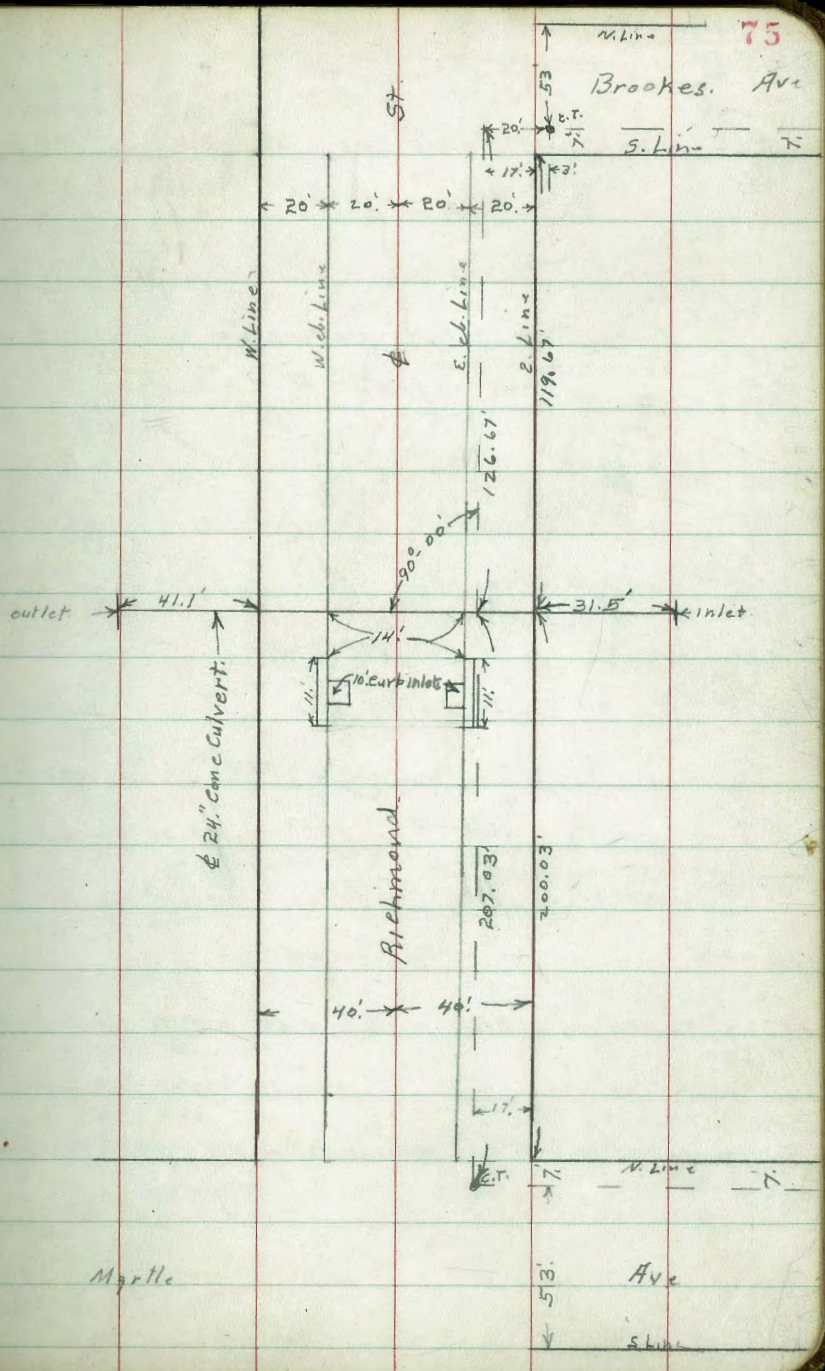 75
N. Line
Brookes. Ave
53
St.
20' C.T.
7' S. Line 7.
17' 3'
20' 20' 20' 20'
W. Line
W. cb. Line
₵
E. cb. Line
E. Line
119.67'
126.67'
90° 00'
outlet 41.1' 31.5' inlet
14'
10' Curb inlets
11' 11'
₵ 24" Conc Culvert.
Richmond.
207.03'
200.03'
40' 40'
17'
C.T. 7' N. Line 7.
Myrtle 53' Ave
S. Line